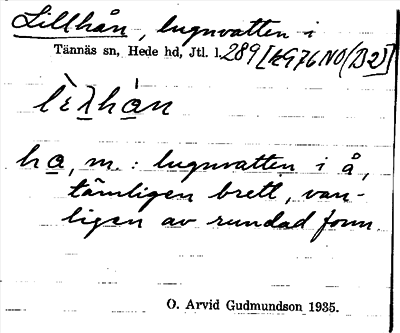 Lillhån, lugnvatten i
Tännäs sn, Hede hd, Jtl. l. 289 [kG76NO(D2)]
hɑ, m. : lugnvatten i å,
tämligen brett, van-
ligen av rundad form.
O. Arvid Gudmundson 1935.